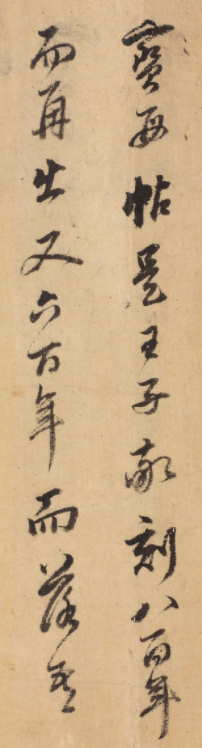 保母帖是王子敬刻八百年
而再出又六百年而落吾